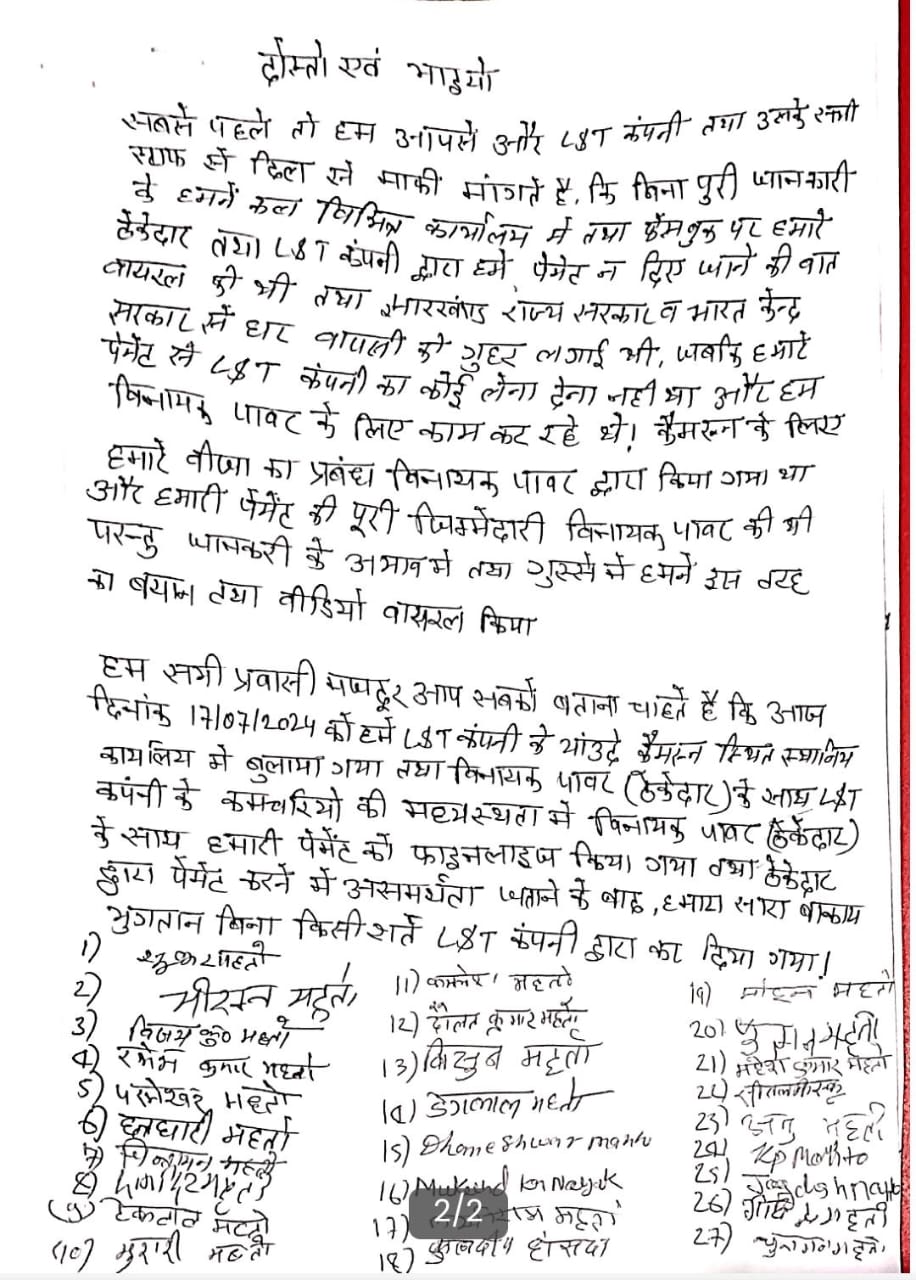 दोस्तो एवं भाइयो
सबसे पहले तो हम आपसे और L&T कंपनी तथा उसके सभी
स्टाफ से दिल से माफी मांगते है, कि बिना पुरी जानकारी
के हमनें कल विभिन्न कार्यालय मे तथा फेसबुक पर हमारे
ठेकेदार तथा L&T कंपनी द्वारा हमे पेमेंट न दिए जाने की बात
वायरल की थी तथा झारखंण्ड राज्य सरकार व भारत केन्द्र
सरकार से घर वापसी की गुहर लगाई थी, जबकि हमारे
पेमेंट से L&T कंपनी का कोई लेना देना नही था और हम
विनायक पावर के लिए काम कर रहे थे। कैमरून के लिए
हमारे वीजा का प्रबंध विनायक पावर द्वारा किया गया था
और हमारी पेमेंट की पूरी जिम्मेदारी विनायक पावर की थी
परन्तु जानकरी के अभाव मे तथा गुस्से मे हमनें इस तरह
का बयान तथा वीडियो वायरल किया
हम सभी प्रवासी मजदूर आप सबको बताना चाहते है कि आज
दिनांक 17/07/2024 को हमे L&T कंपनी के यांउदे कैमरून स्थित स्थानिय
कार्यालय मे बुलाया गया तथा विनायक पावर (ठेकेदार) के साथ L&T
कंपनी के कर्मचारियो की मध्यस्थता मे विनायक पावर (ठेकेदार)
के साथ हमारी पेमेंट को फाइनलाइज किया गया तथा ठेकेदार
द्वारा पेमेंट करने में असमर्थता जताने के बाद, हमारा सारा बाकाया
भुगतान बिना किसी शर्त L&T कंपनी द्वारा कर दिया गया।
1) शुकर महतो
2) महतो
3) विजय कु० महतो
4) रमेश कुमार महतो
5) परमेश्वर महतो
6) महतो
7) महतो
8)
9) टेकलाल महतो
10) मुरारी महतो
11) महतो
12) दौलत कुमार महतो
13) महतो
14) डेगलाल महतो
15) Dhomeshwar mahto
16) Mukund kr Nayak
17) महतो
18) हांसदा
19) मोहन महतो
20) महतो
21) महेश कुमार महतो
22)
23) महतो
24)
25)
26) महतो
27)
2/2